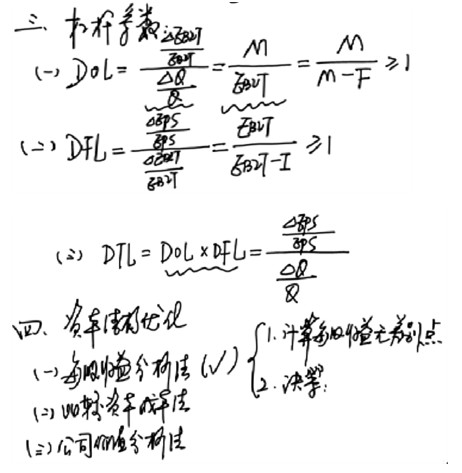 三、杠杆系数
(一) DOL = (ΔEBIT/EBIT)/(ΔQ/Q) = M/EBIT = M/(M-F) ≥1
(二) DFL = (ΔEPS/EPS)/(ΔEBIT/EBIT) = EBIT/(EBIT-I) ≥1
(三) DTL = DOL × DFL = (ΔEPS/EPS)/(ΔQ/Q)
四、资本结构优化
(一) 每股收益分析法 (√) { 1. 计算每股收益无差别点
2. 决策:
(二) 比较资本成本法
(三) 公司价值分析法